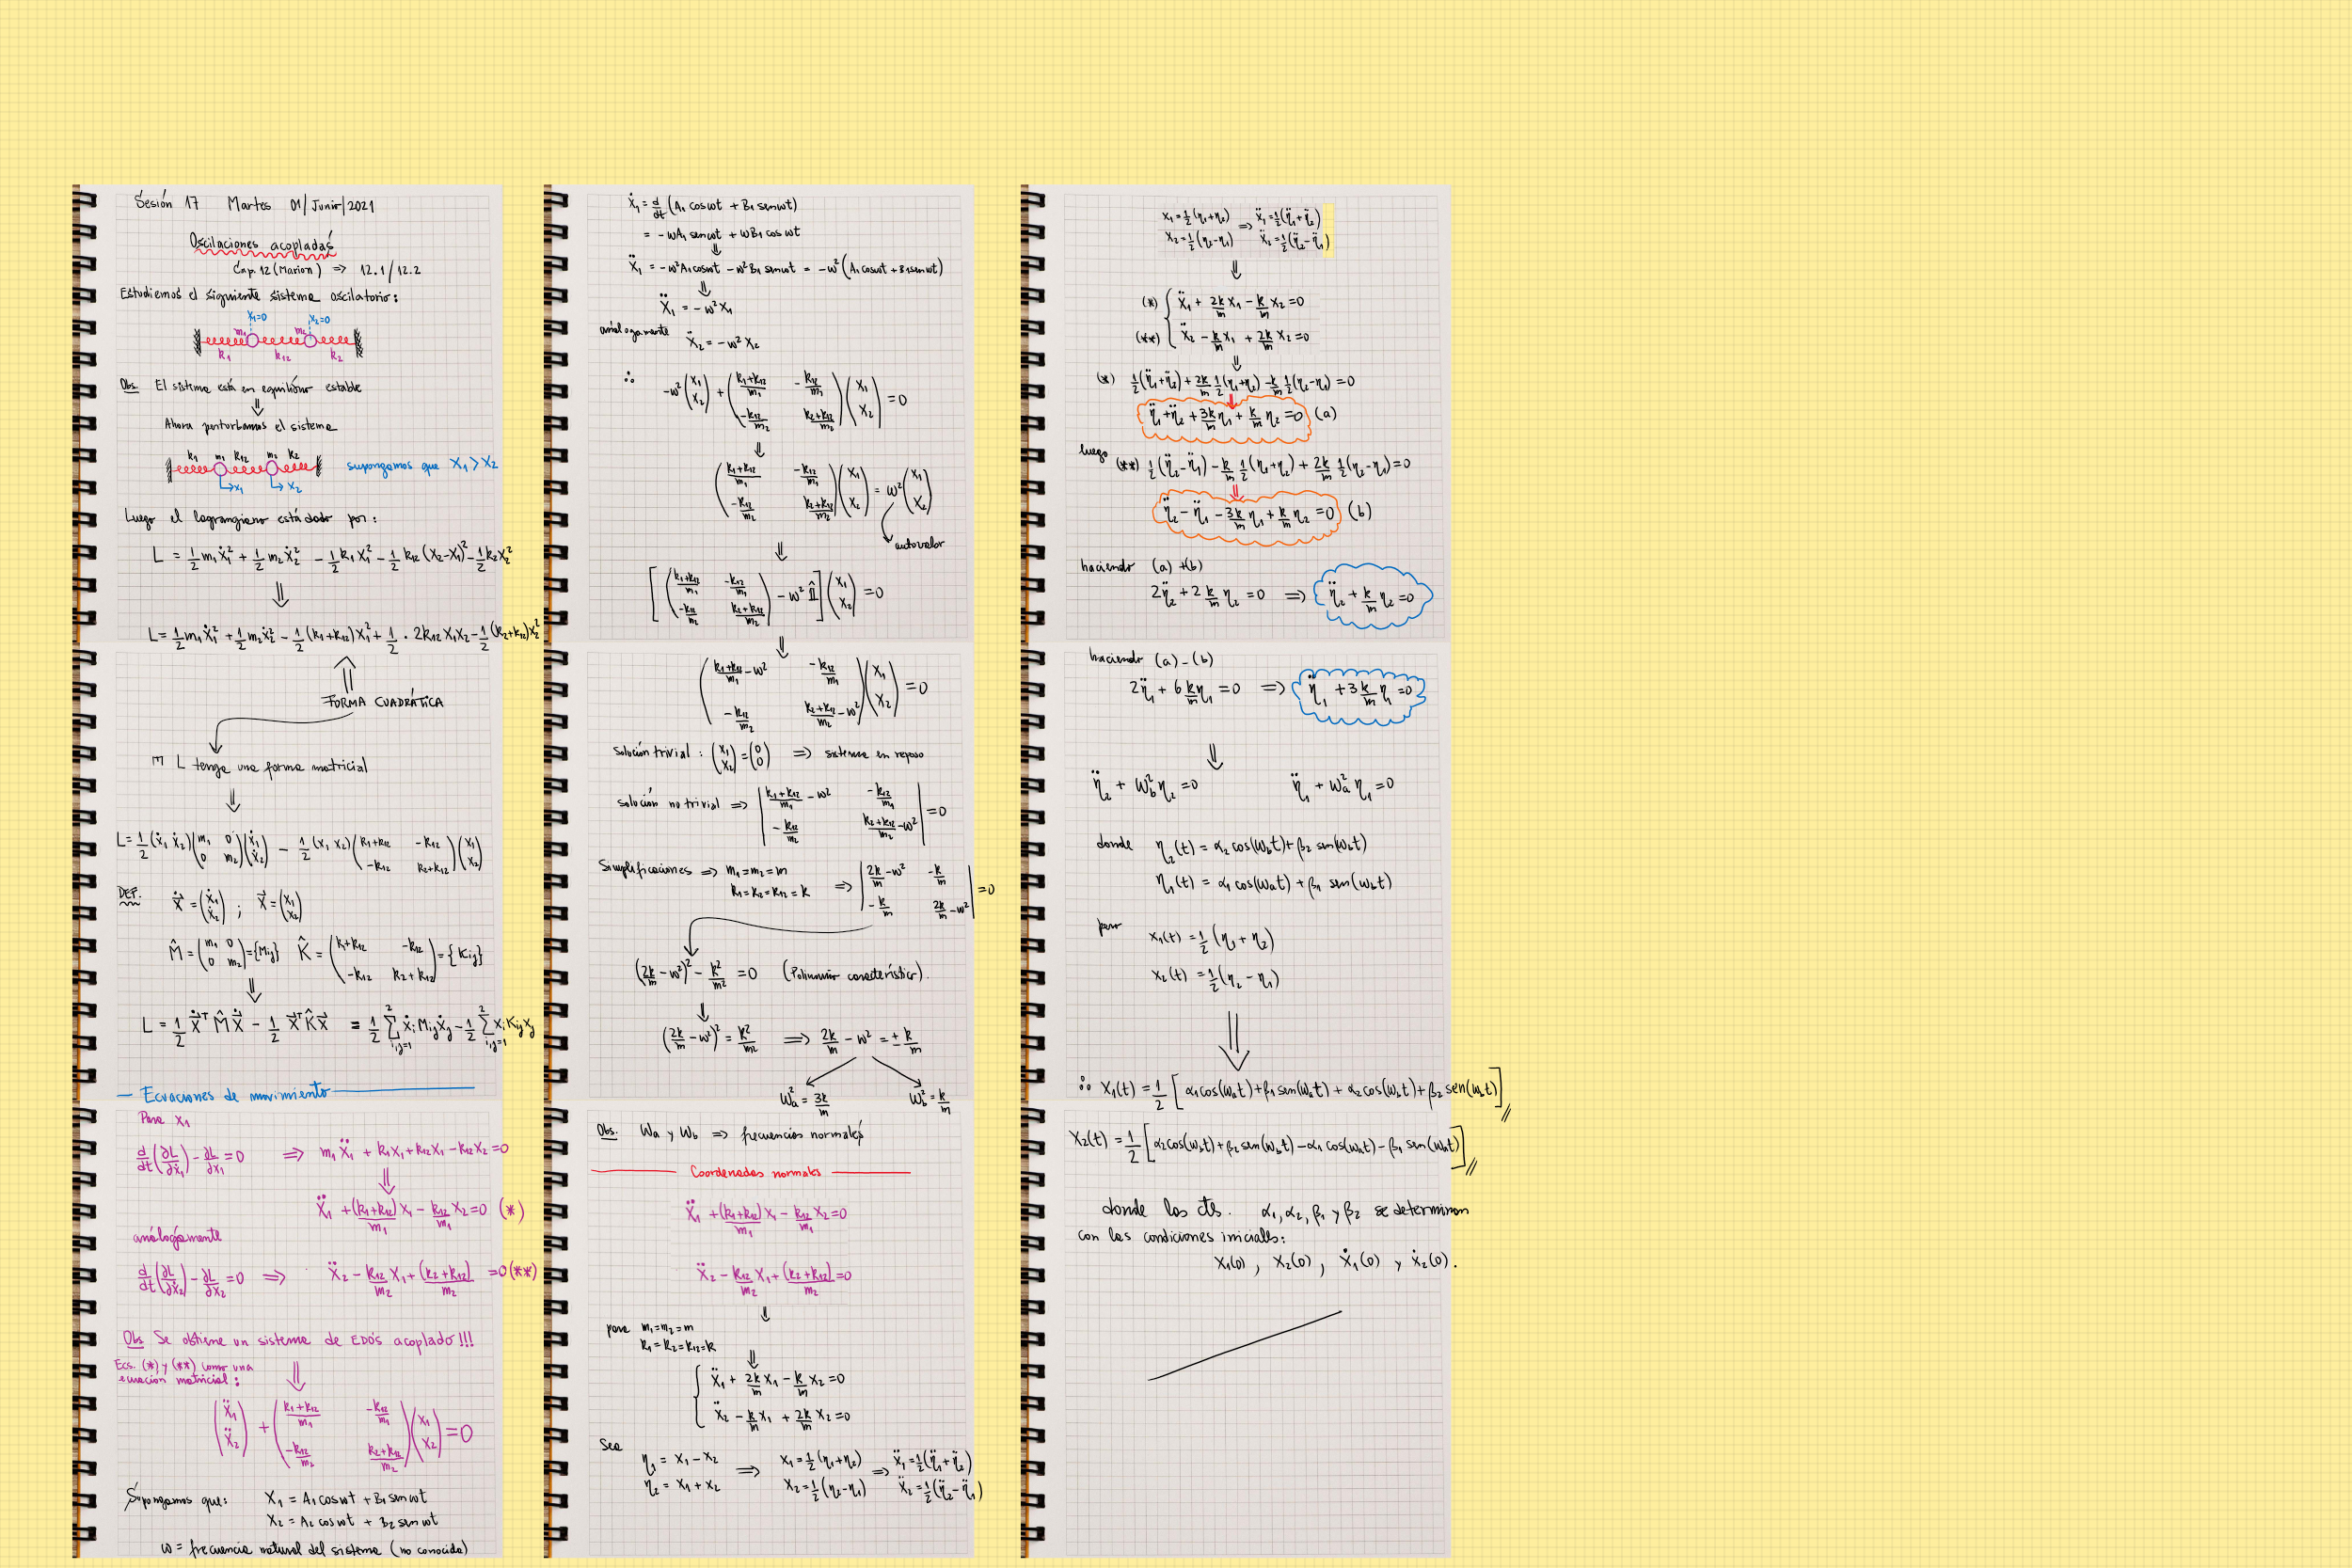 Sesión 17 Martes 01/Junio/2021
Oscilaciones acopladas
Cap. 12 (Marion) => 12.1/12.2
Estudiemos el siguiente sistema oscilatorio:
x₁=0 x₂=0
m₁ m₂
k₁ k₁₂ k₂
Obs El sistema está en equilibrio estable
⇓
Ahora perturbamos el sistema
k₁ m₁ k₁₂ m₂ k₂ supongamos que x₁ > x₂
↳x₁ ↳x₂
Luego el lagrangiano está dado por:
L = 1/2 m₁ẋ₁² + 1/2 m₂ẋ₂² - 1/2 k₁x₁² - 1/2 k₁₂(x₂-x₁)² - 1/2 k₂x₂²
⇓
L = 1/2 m₁ẋ₁² + 1/2 m₂ẋ₂² - 1/2 (k₁+k₁₂)x₁² + 1/2 · 2k₁₂x₁x₂ - 1/2 (k₂+k₁₂)x₂²
⇑
FORMA CUADRÁTICA
L tenga una forma matricial
⇓
L = 1/2 (ẋ₁ ẋ₂)(m₁ 0; 0 m₂)(ẋ₁; ẋ₂) - 1/2 (x₁ x₂)(k₁+k₁₂ -k₁₂; -k₁₂ k₂+k₁₂)(x₁; x₂)
DEF. ẋ = (ẋ₁; ẋ₂) ; x = (x₁; x₂)
M̂ = (m₁ 0; 0 m₂) = {Mij} K̂ = (k₁+k₁₂ -k₁₂; -k₁₂ k₂+k₁₂) = {Kij}
⇓
L = 1/2 ẋᵀM̂ẋ - 1/2 xᵀK̂x = 1/2 Σ²ᵢ,ⱼ₌₁ ẋᵢMijẋⱼ - 1/2 Σ²ᵢ,ⱼ₌₁ xᵢKijxⱼ
— Ecuaciones de movimiento —
Para x₁
d/dt(∂L/∂ẋ₁) - ∂L/∂x₁ = 0 => m₁ẍ₁ + k₁x₁ + k₁₂x₁ - k₁₂x₂ = 0
⇓
ẍ₁ + (k₁+k₁₂)/m₁ x₁ - k₁₂/m₁ x₂ = 0 (*)
análogamente
d/dt(∂L/∂ẋ₂) - ∂L/∂x₂ = 0 => ẍ₂ - k₁₂/m₂ x₁ + (k₂+k₁₂)/m₂ = 0 (**)
Obs Se obtiene un sistema de EDO's acoplado!!!
Ecs. (*) y (**) como una
ecuación matricial: ⇓
(ẍ₁; ẍ₂) + ((k₁+k₁₂)/m₁ -k₁₂/m₁; -k₁₂/m₂ (k₂+k₁₂)/m₂)(x₁; x₂) = 0
Supongamos que: x₁ = A₁ cos ωt + B₁ sen ωt
x₂ = A₂ cos ωt + B₂ sen ωt
ω = frecuencia natural del sistema (no conocida)
ẋ₁ = d/dt (A₁ cos ωt + B₁ sen ωt)
= -ωA₁ sen ωt + ωB₁ cos ωt
⇓
ẍ₁ = -ω²A₁ cos ωt - ω²B₁ sen ωt = -ω²(A₁ cos ωt + B₁ sen ωt)
⇓
ẍ₁ = -ω²x₁
análogamente
ẍ₂ = -ω²x₂
∴ -ω²(x₁; x₂) + ((k₁+k₁₂)/m₁ -k₁₂/m₁; -k₁₂/m₂ (k₂+k₁₂)/m₂)(x₁; x₂) = 0
⇓
((k₁+k₁₂)/m₁ -k₁₂/m₁; -k₁₂/m₂ (k₂+k₁₂)/m₂)(x₁; x₂) = ω²(x₁; x₂)
autovalor
⇓
[((k₁+k₁₂)/m₁ -k₁₂/m₁; -k₁₂/m₂ (k₂+k₁₂)/m₂) - ω² 𝟙̂](x₁; x₂) = 0
⇓
((k₁+k₁₂)/m₁ - ω² -k₁₂/m₁; -k₁₂/m₂ (k₂+k₁₂)/m₂ - ω²)(x₁; x₂) = 0
Solución trivial: (x₁; x₂) = (0; 0) => sistema en reposo
solución no trivial => |(k₁+k₁₂)/m₁ - ω² -k₁₂/m₁; -k₁₂/m₂ (k₂+k₁₂)/m₂ - ω²| = 0
Simplificaciones => m₁=m₂=m
k₁=k₂=k₁₂=k => |2k/m - ω² -k/m; -k/m 2k/m - ω²| = 0
(2k/m - ω²)² - k²/m² = 0 (Polinomio característico).
⇓
(2k/m - ω²)² = k²/m² => 2k/m - ω² = ± k/m
ωa² = 3k/m ωb² = k/m
Obs. ωa y ωb => frecuencias normales
— Coordenadas normales —
ẍ₁ + (k₁+k₁₂)/m₁ x₁ - k₁₂/m₁ x₂ = 0
ẍ₂ - k₁₂/m₂ x₁ + (k₂+k₁₂)/m₂ = 0
⇓
para m₁=m₂=m
k₁=k₂=k₁₂=k
⇓
ẍ₁ + 2k/m x₁ - k/m x₂ = 0
ẍ₂ - k/m x₁ + 2k/m x₂ = 0
Sea
η₁ = x₁ - x₂ => x₁ = 1/2 (η₁+η₂) => ẍ₁ = 1/2 (η̈₁+η̈₂)
η₂ = x₁ + x₂ x₂ = 1/2 (η₂-η₁) ẍ₂ = 1/2 (η̈₂-η̈₁)
x₁ = 1/2 (η₁+η₂) => ẍ₁ = 1/2 (η̈₁+η̈₂)
x₂ = 1/2 (η₂-η₁) ẍ₂ = 1/2 (η̈₂-η̈₁)
⇓
(*) ẍ₁ + 2k/m x₁ - k/m x₂ = 0
(**) ẍ₂ - k/m x₁ + 2k/m x₂ = 0
⇓
(*) 1/2 (η̈₁+η̈₂) + 2k/m 1/2 (η₁+η₂) - k/m 1/2 (η₂-η₁) = 0
η̈₁ + η̈₂ + 3k/m η₁ + k/m η₂ = 0 (a)
luego
(**) 1/2 (η̈₂-η̈₁) - k/m 1/2 (η₁+η₂) + 2k/m 1/2 (η₂-η₁) = 0
⇓
η̈₂ - η̈₁ - 3k/m η₁ + k/m η₂ = 0 (b)
haciendo (a)+(b)
2η̈₂ + 2 k/m η₂ = 0 => η̈₂ + k/m η₂ = 0
haciendo (a)-(b)
2η̈₁ + 6 k/m η₁ = 0 => η̈₁ + 3k/m η₁ = 0
⇓
η̈₂ + ωb² η₂ = 0 η̈₁ + ωa² η₁ = 0
donde η₂(t) = α₂ cos(ωbt) + β₂ sen(ωbt)
η₁(t) = α₁ cos(ωat) + β₁ sen(ωbt)
pero
x₁(t) = 1/2 (η₁ + η₂)
x₂(t) = 1/2 (η₂ - η₁)
⇓
∴ x₁(t) = 1/2 [α₁cos(ωat) + β₁ sen(ωat) + α₂cos(ωbt) + β₂ sen(ωbt)]
x₂(t) = 1/2 [α₂cos(ωbt) + β₂ sen(ωbt) - α₁ cos(ωat) - β₁ sen(ωat)]
donde las cts. α₁, α₂, β₁ y β₂ se determinan
con las condiciones iniciales:
x₁(0), x₂(0), ẋ₁(0) y ẋ₂(0).